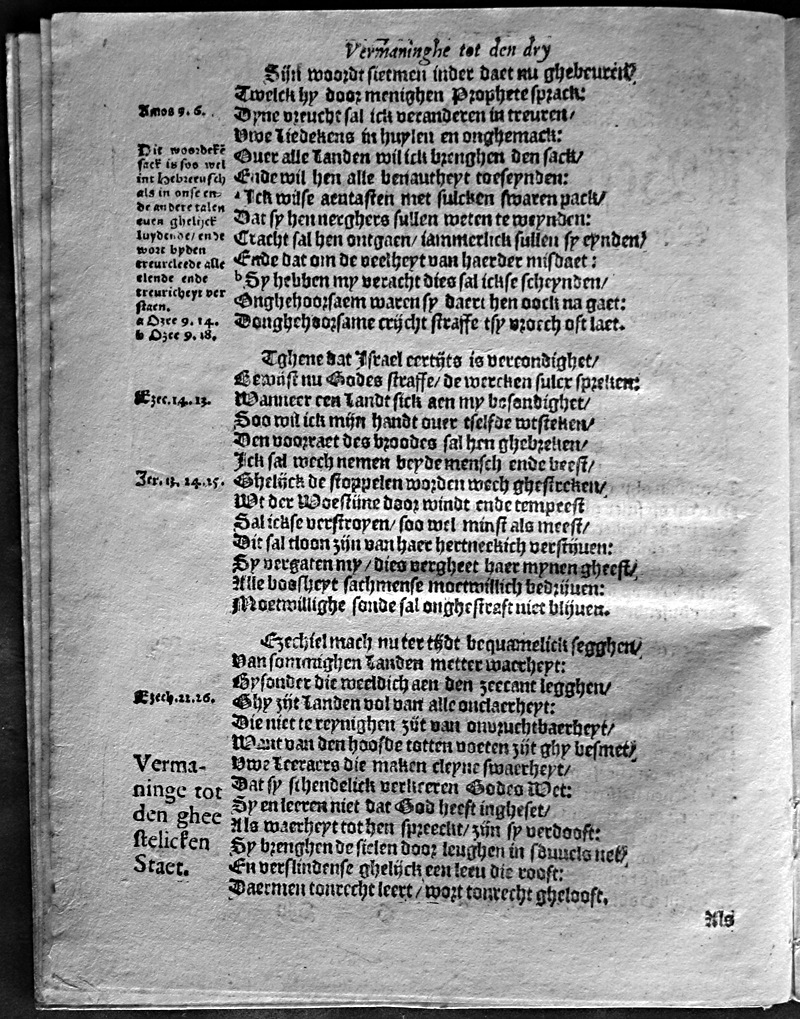 Vermaninghe tot den dry
Sijn woordt sietmen inder daet nu ghebeuren/
Twelck hy door menighen Prophete sprack:
Amos 9. 6.
Dyne vreucht sal ick veranderen in treuren/
Uwe Liedekens in huylen en onghemack:
Dit woordekē
sack is soo wel
int Hebreeusch
als in onse en-
de andere talen
euen ghelijck
luydende/ ende
wort byden
treurcleede alle
elende ende
treuricheyt ver
staen.
a Ozee 9. 14.
b Ozee 9. 18.
Ouer alle Landen wil ick brenghen den sack/
Ende wil hen alle benautheyt toeseynden:
a Ick wilse aentasten met sulcken swaren pack/
Dat sy hen nerghers sullen weten te weynden:
Cracht sal hen ontgaen/ iammerlick sullen sy eynden/
Ende dat om de veelheyt van haerder misdaet:
b Sy hebben my veracht dies sal ickse scheynden/
Onghehoorsaem waren sy daert hen oock na gaet:
Donghehoorsame crijcht straffe tsy vroech oft laet.
Tghene dat Israel eertijts is vercondighet/
Bewijst nu Godes straffe/ de wercken sulcx spreken:
Ezec. 14. 13.
Wanneer een Landt sick aen my besondighet/
Soo wil ick mijn handt ouer tselfde wtsteken/
Den voorraet des broodes sal hen ghebreken/
Ick sal wech nemen beyde mensch ende beest/
Jer. 13. 24. 25.
Ghelijck de stoppelen worden wech ghestreken/
Wt der Woestijne door windt ende tempeest
Sal ickse verstroyen/ soo wel minst als meest/
Dit sal tloon zijn van haer hertneckich verstijuen:
Sy vergaten my/ dies vergheet haer mynen gheest/
Alle boosheyt sachmense moetwillich bedrijuen:
Moetwillighe sonde sal onghestraft niet blijuen.
Ezechiel mach nu ter tijdt bequamelick segghen/
Van sommighen Landen metter waerheyt:
Bysonder die weeldich aen den zeecant legghen/
Ezech. 22. 26.
Ghy zijt Landen vol van alle onclaerheyt:
Die niet te reynighen zijt van onvruchtbaerheyt/
Want van den hoofde totten voeten zijt ghy besmet/
Verma-
ninge tot
den ghee
stelicken
Staet.
Uwe Leeraers die maken cleyne swaerheyt/
Dat sy schendelick verkeeren Godes Wet:
Sy en leeren niet dat God heeft ingheset/
Als waerheyt tot hen spreeckt/ zijn sy verdooft:
Sy brenghen de sielen door leughen in sduuels net/
En verslindense ghelijck een leeu die rooft:
Daermen tonrecht leert/ wort tonrecht ghelooft.
Als